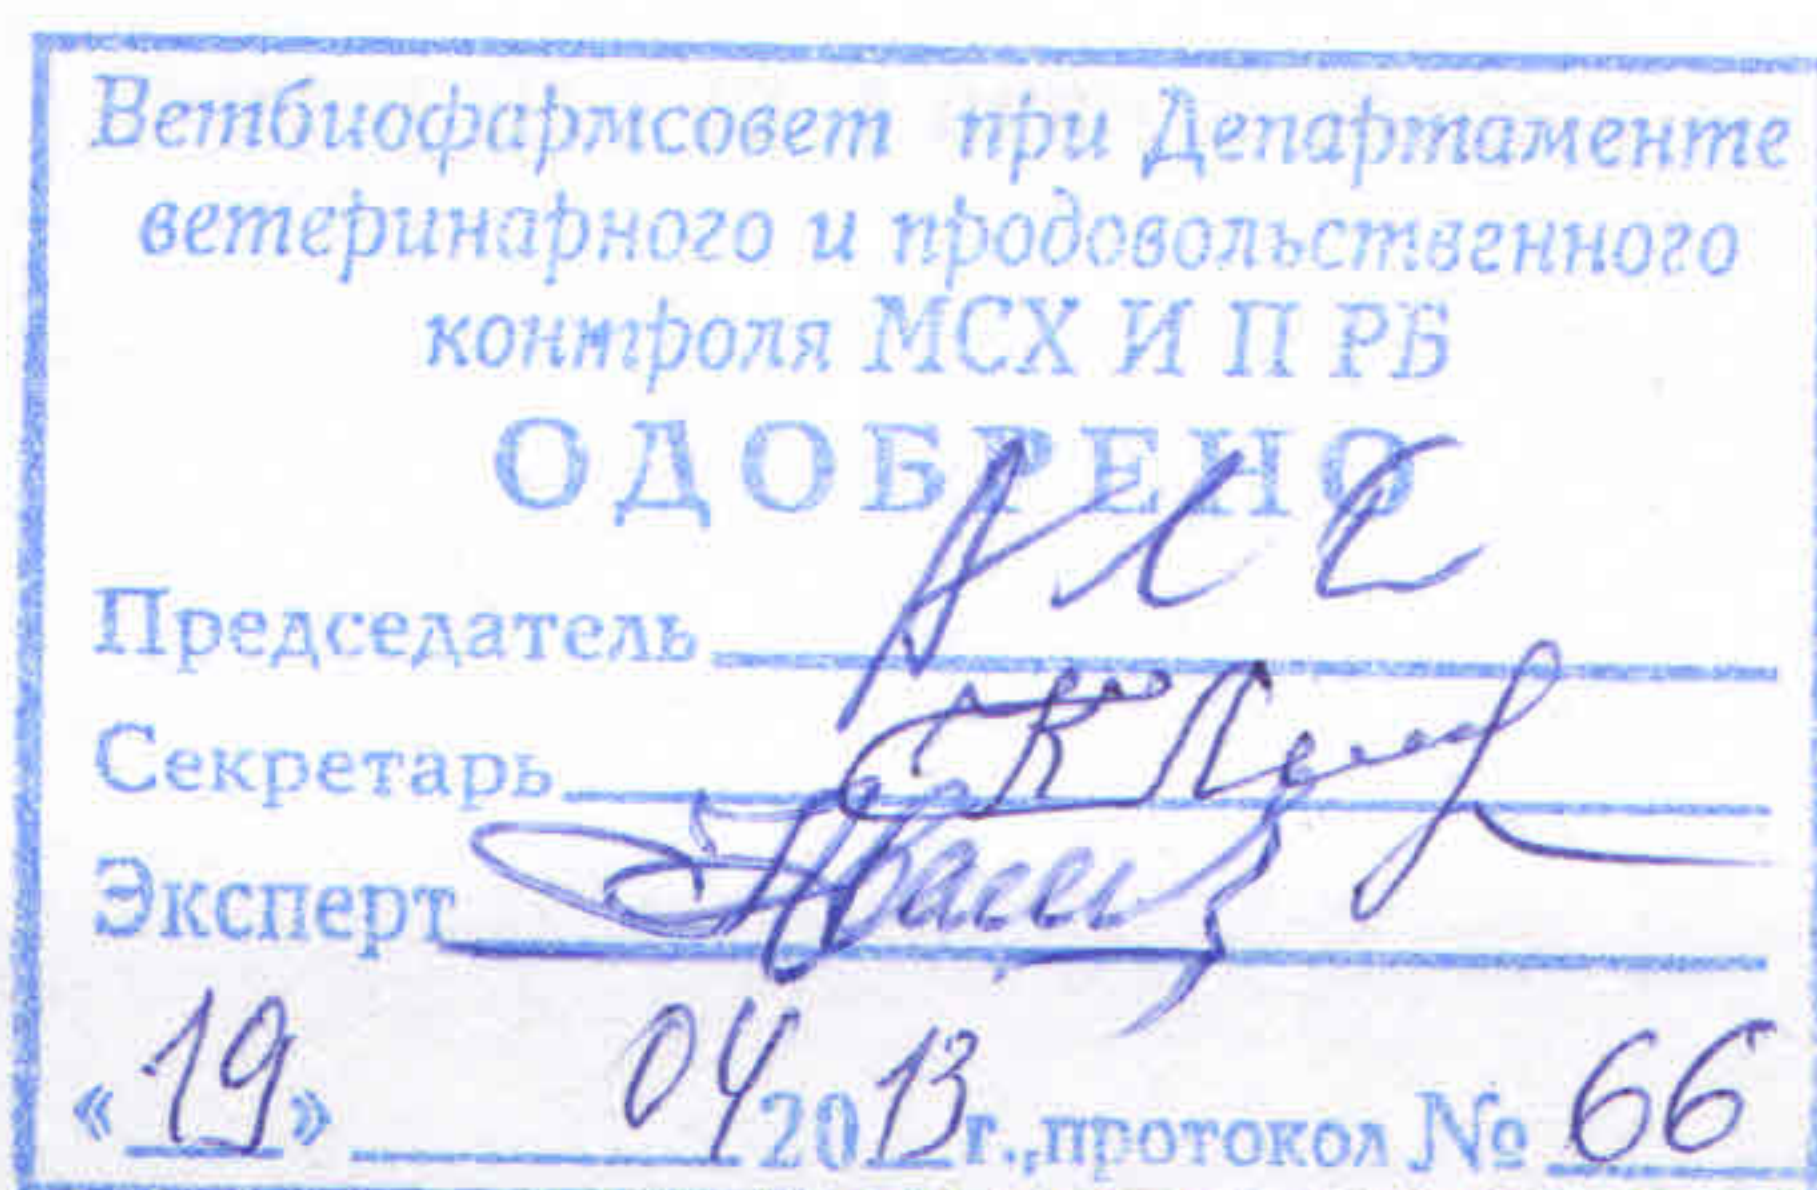 Ветбиофармсовет при Департаменте
ветеринарного и продовольственного
контроля МСХ И П РБ
ОДОБРЕНО
Председатель
Секретарь
Эксперт
«19» 04 2013 г., протокол № 66